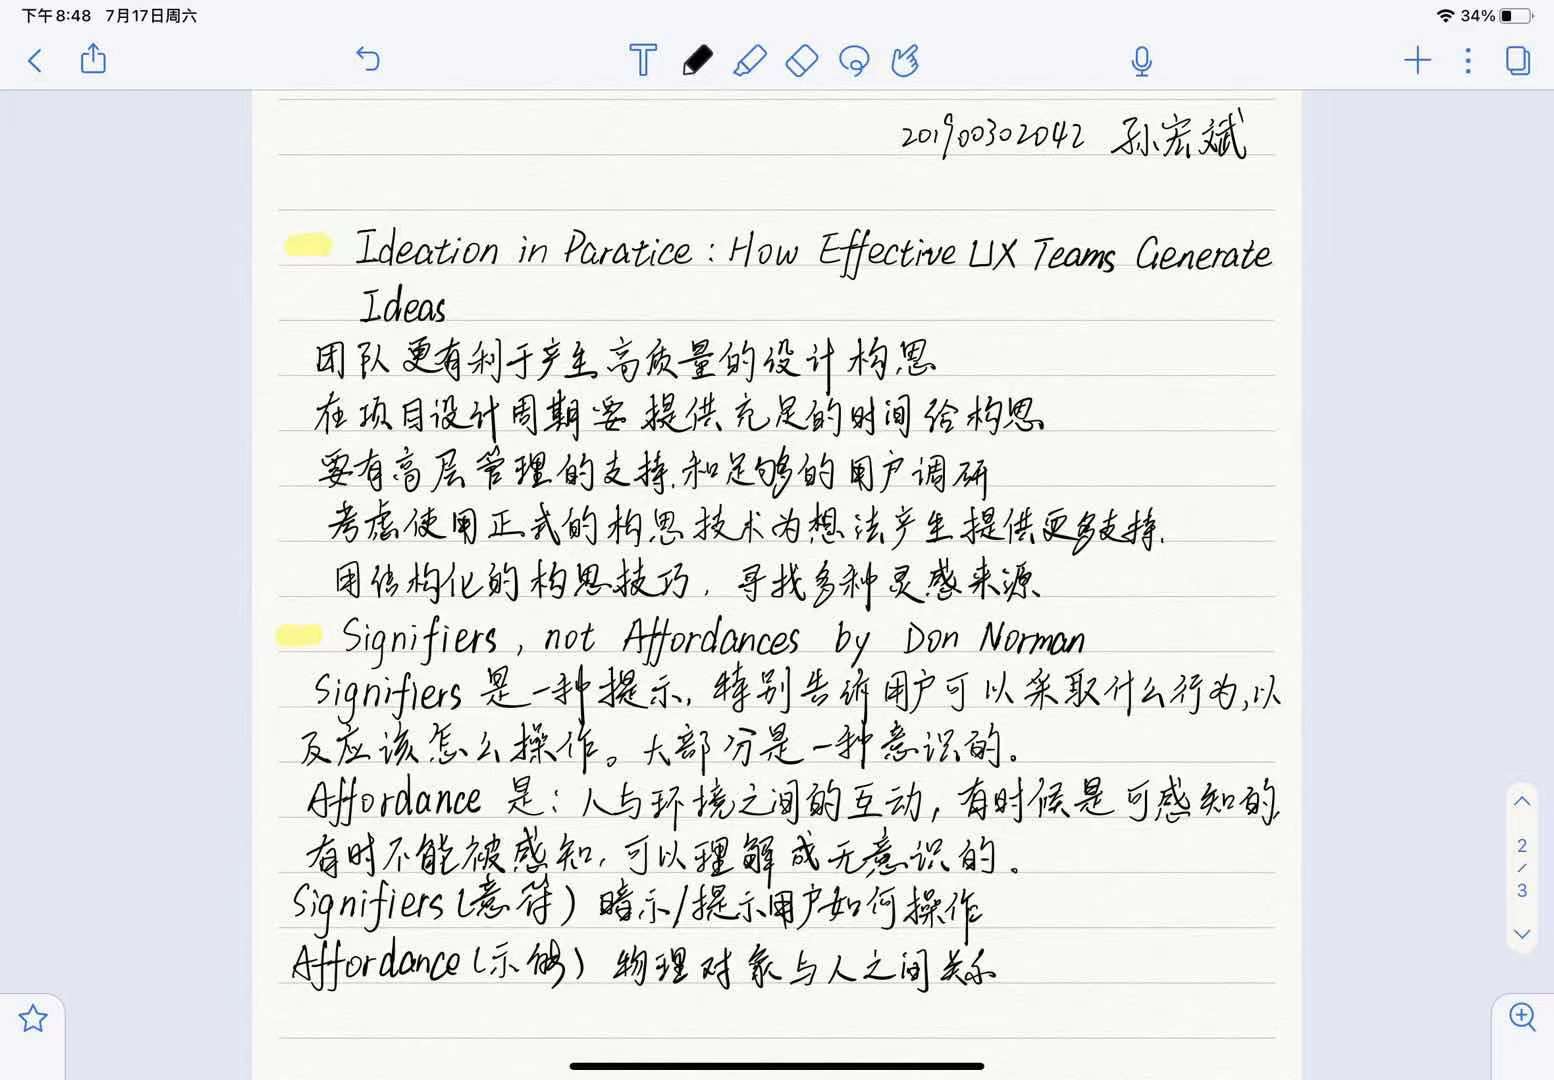 下午8:48 7月17日周六
34%
201900302042 孙宏斌
Ideation in Paratice : How Effective UX Teams Generate
Ideas
团队更有利于产生高质量的设计构思
在项目设计周期要提供充足的时间给构思
要有高层管理的支持,和足够的用户调研
考虑使用正式的构思技术为想法产生提供更多支持,
团结构化的构思技巧,寻找多种灵感来源
Signifiers, not Affordances by Don Norman
Signifiers 是一种提示,特别告诉用户可以采取什么行为,以
及应该怎么操作。大部分是一种意识的。
Affordance 是:人与环境之间的互动,有时候是可感知的,
有时不能被感知,可以理解成无意识的。
Signifiers(意符)暗示/提示用户如何操作
Affordance(示能)物理对象与人之间关系
2
/
3